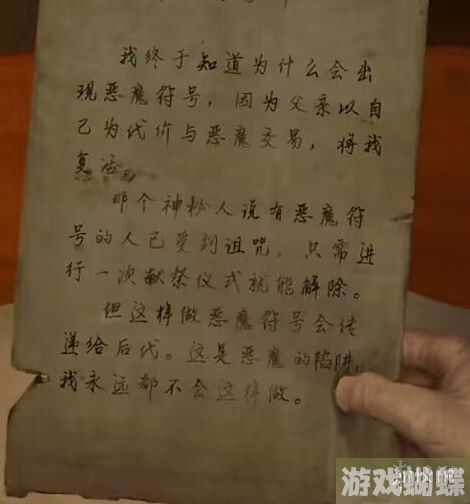 我终于知道为什么会出
现恶魔符号，因为父亲以自
己为代价与恶魔交易，将我
复活。
那个神秘人说有恶魔符
号的人已受到诅咒，只需进
行一次献祭仪式就能解除。
但这样做恶魔符号会传
递给后代。这是恶魔的陷阱，
我永远都不会这样做。
游戏蝴蝶